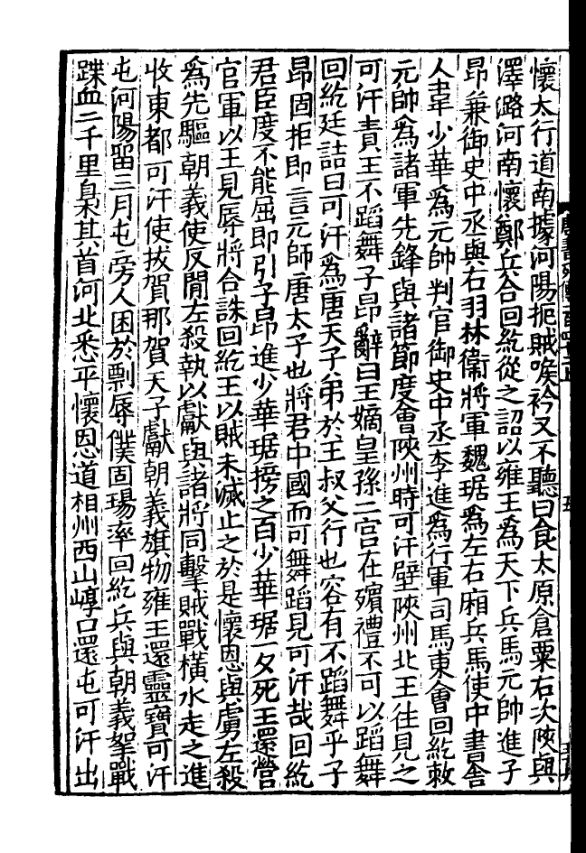 懷太行道南據河陽扼賊喉衿又不聽曰食太原倉粟右次陜與
澤潞河南懷鄭兵合回紇從之詔以雍王為天下兵馬元帥進子
昂兼御史中丞與右羽林衞將軍魏琚為左右廂兵馬使中書舍
人韋少華為元帥判官御史中丞李進為行軍司馬東會回紇敕
元帥為諸軍先鋒與諸節度會陜州時可汗壁陜州北王往見之
可汗責王不蹈舞子昂辭曰王嫡皇孫二宮在殯禮不可以蹈舞
回紇廷詰曰可汗為唐天子弟於王叔父行也容有不蹈舞乎子
昂固拒即言元帥唐太子也將君中國而可舞蹈見可汗哉回紇
君臣度不能屈即引子昂進少華琚搒之百少華琚一夕死王還營
官軍以王見辱將合誅回紇王以賊未滅止之於是懷恩與虜左殺
為先驅朝義使反閒左殺執以獻與諸將同擊賊戰橫水走之進
收東都可汗使拔賀那賀天子獻朝義旗物雍王還靈寶可汗
屯河陽留三月屯旁人困於剽辱僕固瑒率回紇兵與朝義挐戰
蹀血二千里梟其首河北悉平懷恩道相州西山崞口還屯可汗出